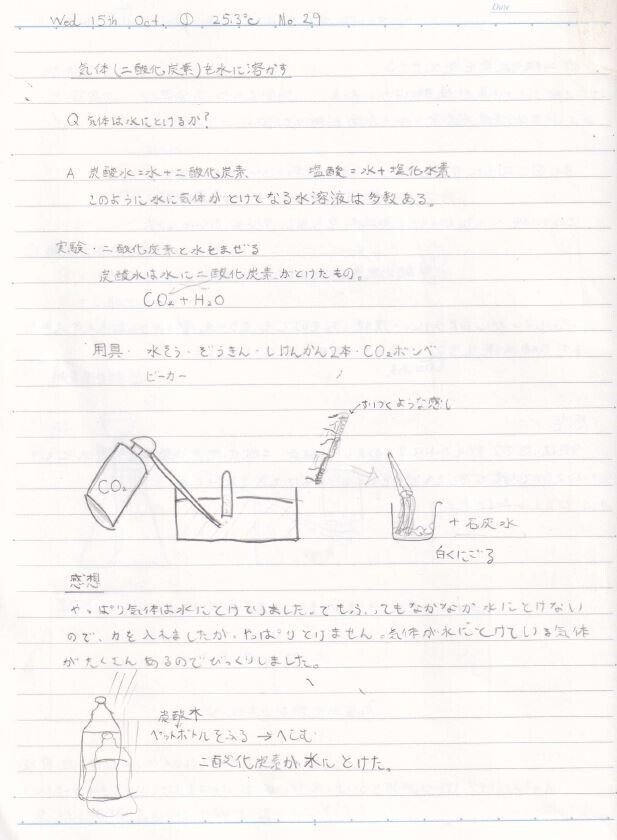 Date
Wed 15th Oct. ① 25.3°C No.29
気体(二酸化炭素)を水に溶かす
Q 気体は水にとけるか?
A 炭酸水=水+二酸化炭素 塩酸=水+塩化水素
このように水に気体がとけてなる水溶液は多数ある。
実験・二酸化炭素と水をまぜる
炭酸水は水に二酸化炭素がとけたもの。
CO₂+H₂O
用具・水そう・ぞうきん・しけんかん2本・CO₂ボンベ
ビーカー
すいつくような感じ
CO₂
+石灰水
白くにごる
感想
やっぱり気体は水にとけていました。でもふってもなかなか水にとけない
ので、力を入れましたが、やっぱりとけません。気体が水にとけている気体
がたくさんあるのでびっくりしました。
炭酸水
ペットボトルをふる→へこむ
二酸化炭素が水にとけた。